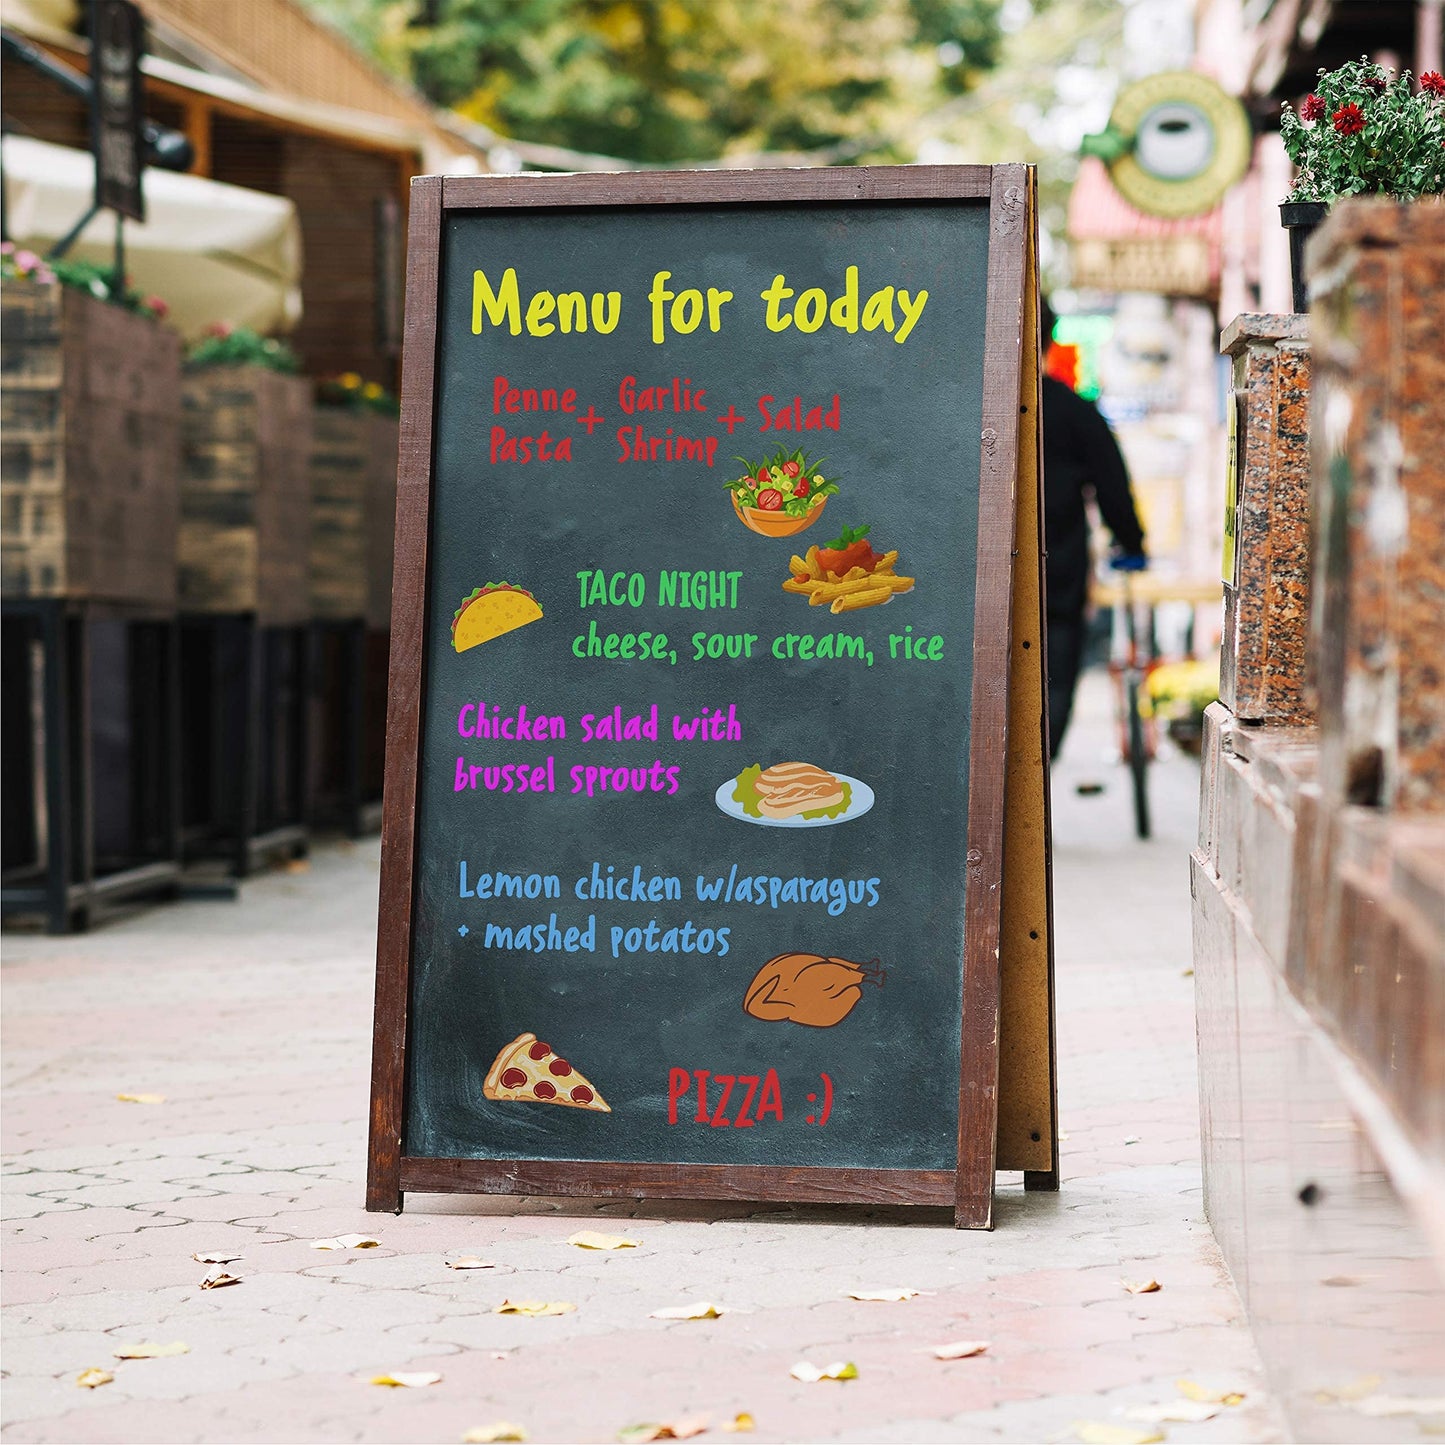 Menu for today
Penne + Garlic + Salad
Pasta Shrimp
TACO NIGHT
cheese, sour cream, rice
Chicken salad with
brussel sprouts
Lemon chicken w/asparagus
+ mashed potatos
PIZZA :)